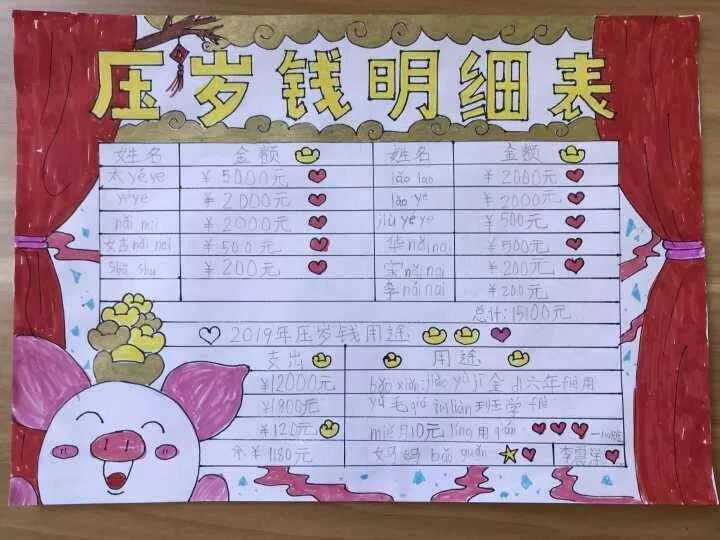 压岁钱明细表
姓名 金额 姓名 金额
太yéye ￥5000元 lǎo lao ￥2000元
yéye ￥2000元 lǎo ye ￥2000元
nǎi nai ￥2000元 jiù yéye ￥500元
nǎi nai ￥500元 华nǎinai ￥500元
Shū shu ￥200元 宋nǎinai ￥200元
李nǎinai ￥200元
总计:15100元
2019年压岁钱用途
支出 用途
￥12000元 bǎo xiǎn:jiào yù jī 金 六年
￥1800元 yǔ 毛 qiú xùn liàn 班学 fèi
￥120元 měi月10元 líng 用 qián
余￥1180元 妈妈 bǎo guǎn